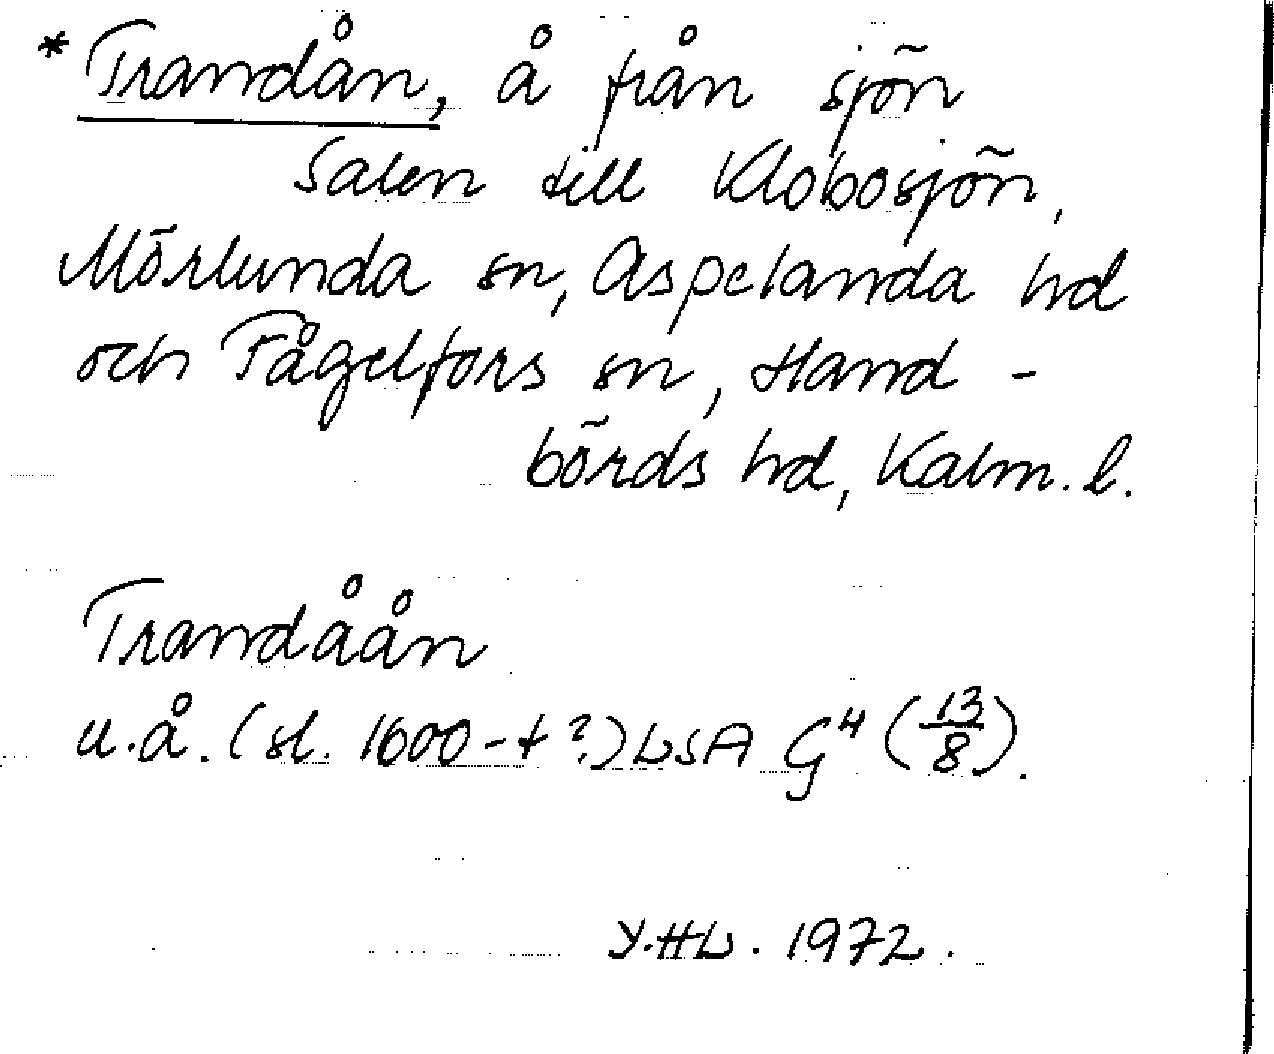 * Trandån, å från sjön
Salen till Klobosjön,
Mörlunda sn, Aspelanda hd
och Fågelfors sn, Hand-
börds hd, Kalm. l.
Trandåån
u.å. (sl. 1600-t ?) LSA G4 (13/8).
Y.HL. 1972.